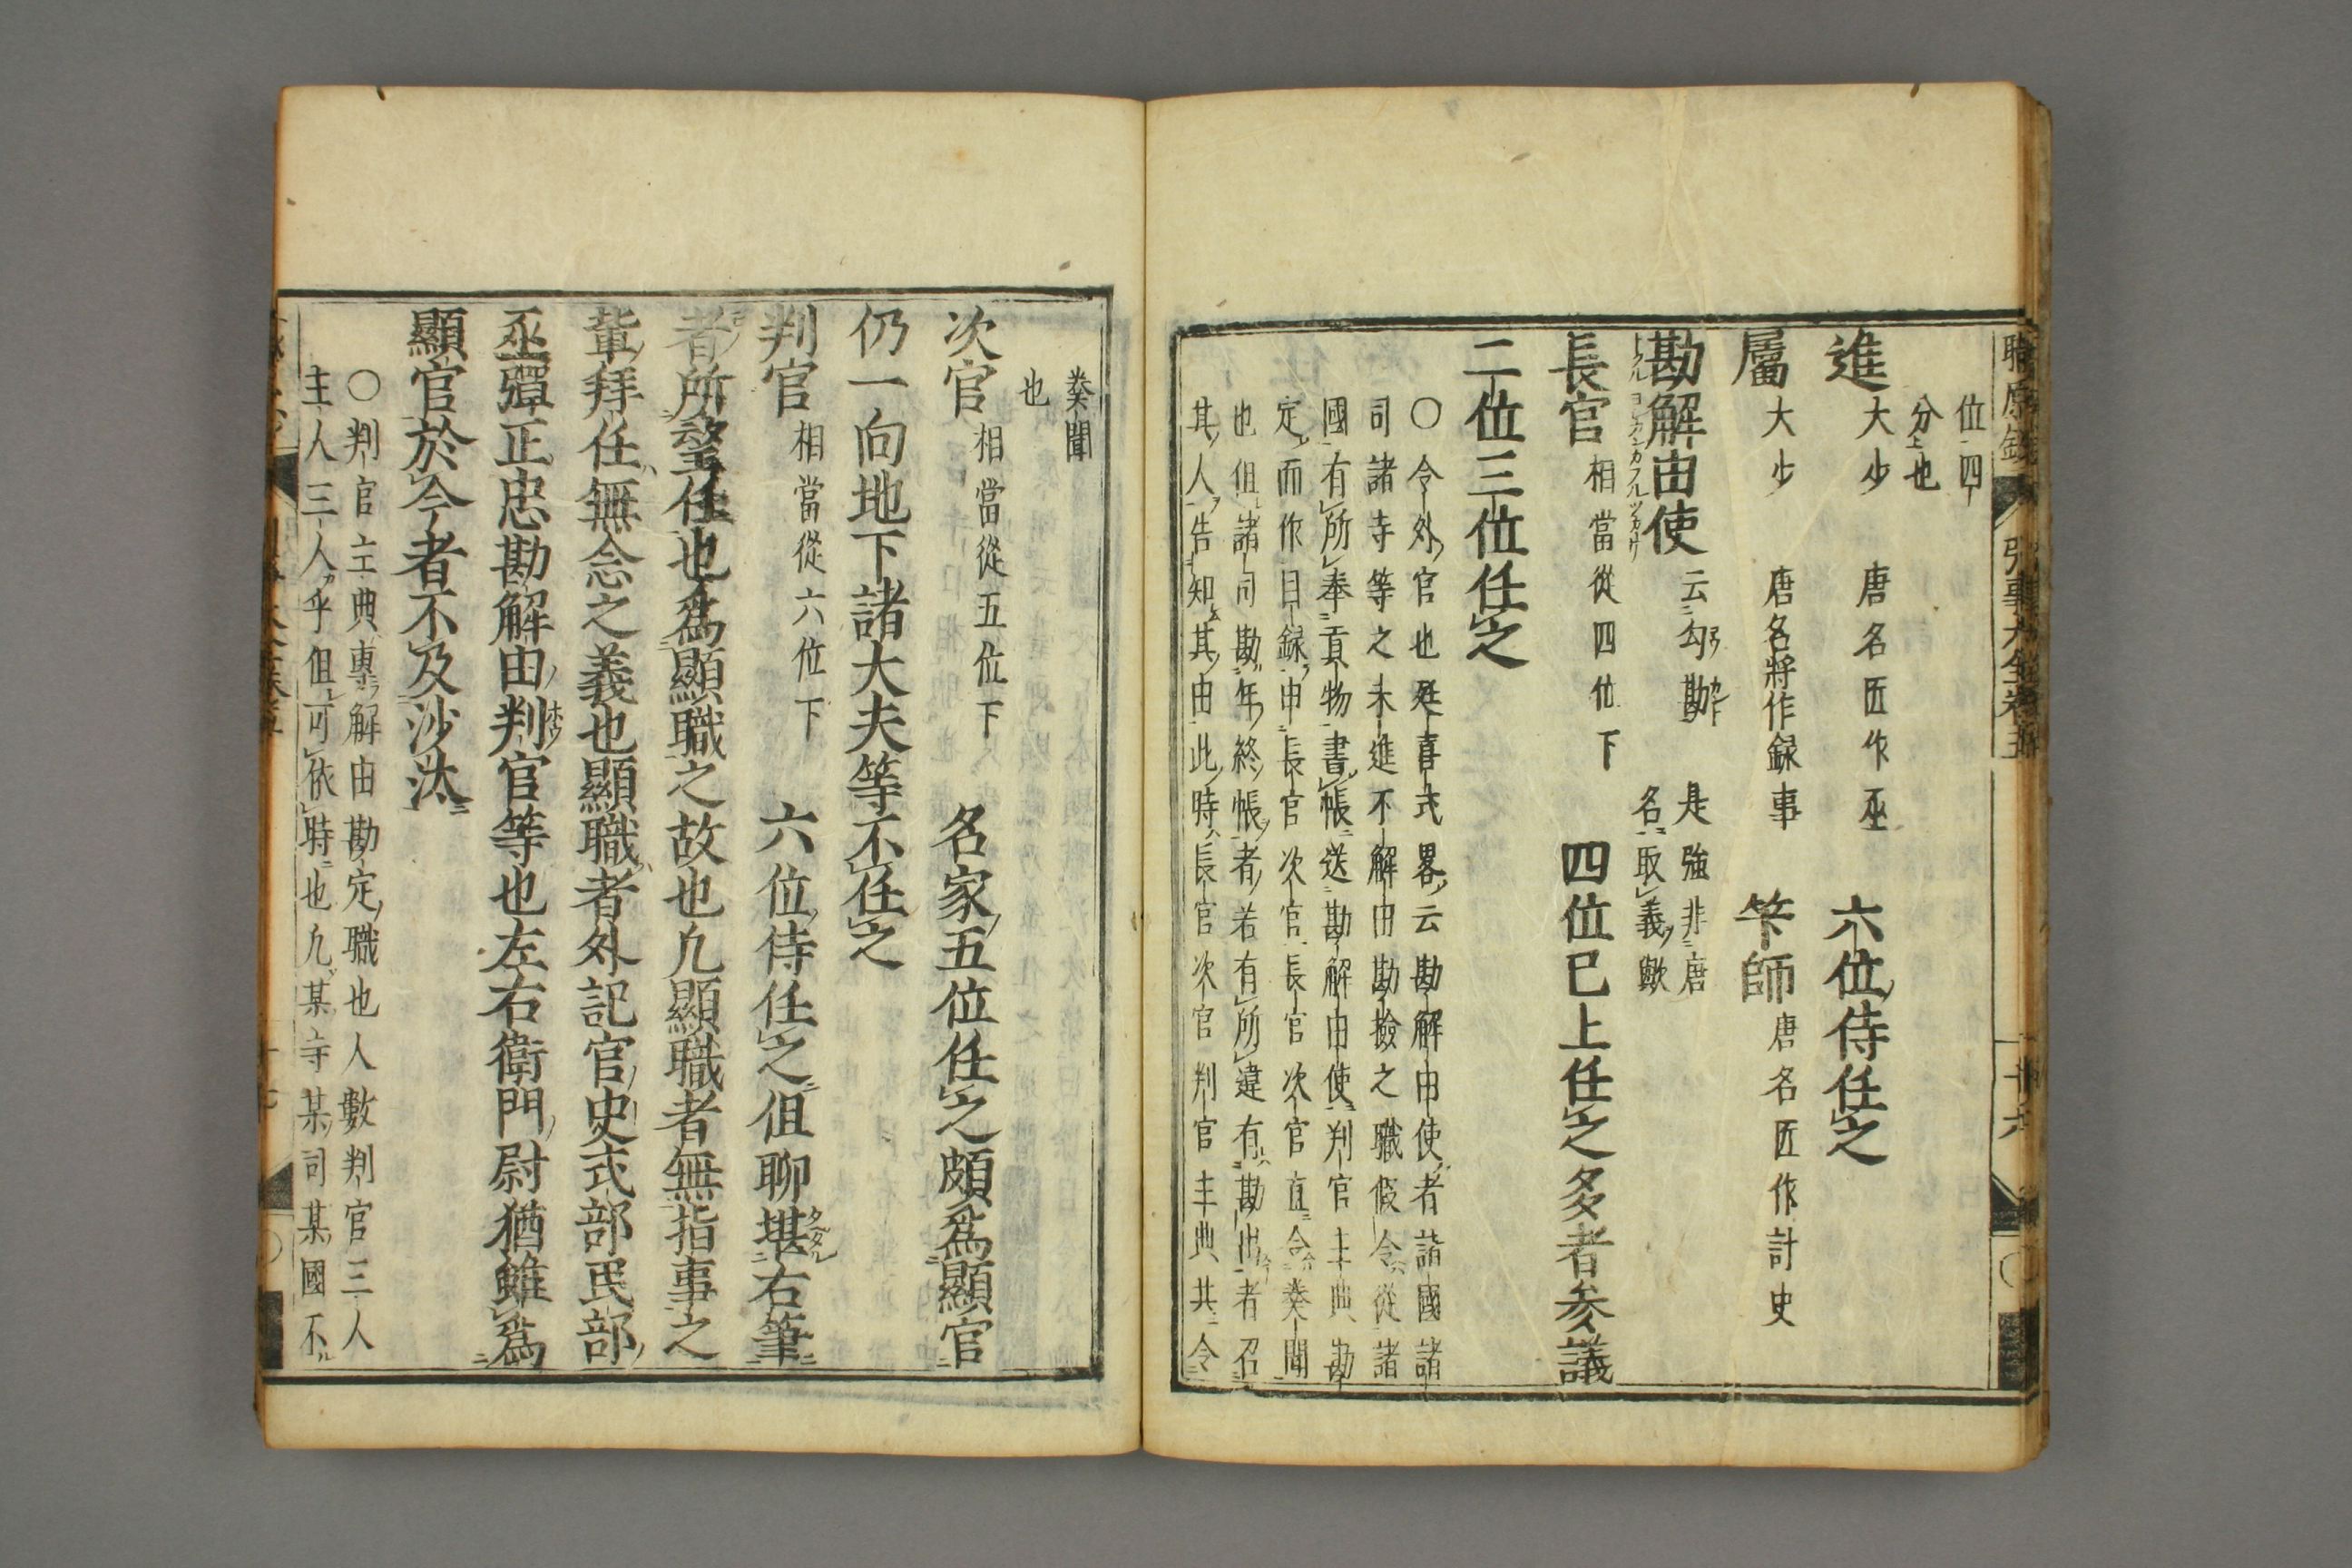 位四
分也
進 大少 唐名匠作丞 六位侍任之
屬 大少 唐名將作録事 筭師 唐名匠作計史
勘解由使 云勾勘 是強非唐
名取義歟
長官 相當從四位下 四位已上任之多者参議
二位三位任之
○令外官也延喜式畧云勘解由使者諸國諸
司諸寺等之未進不解由勘檢之職假令從諸
國有所奉貢物書帳送勘解由使判官主典勘
定而作目録申長官次官長官次官直令奏聞
也但諸司勘年終帳者若有所違有勘也者召
其人告知其由此時長官次官判官主典共令
奏聞
也
次官 相當從五位下 名家五位任之頗爲顯官
仍一向地下諸大夫等不任之
判官 相當從六位下 六位侍任之但聊堪右筆
者所望任也爲顯職之故也凢顯職者無指事之
輩拜任無念之義也顯職者外記官史式部民部
丞彈正忠勘解由判官等也左右衛門尉猶雖爲
顯官於今者不及沙汰
○判官主典專解由勘定職也人數判官三人
主人三人乎但可依時也凢某寺某司某國不